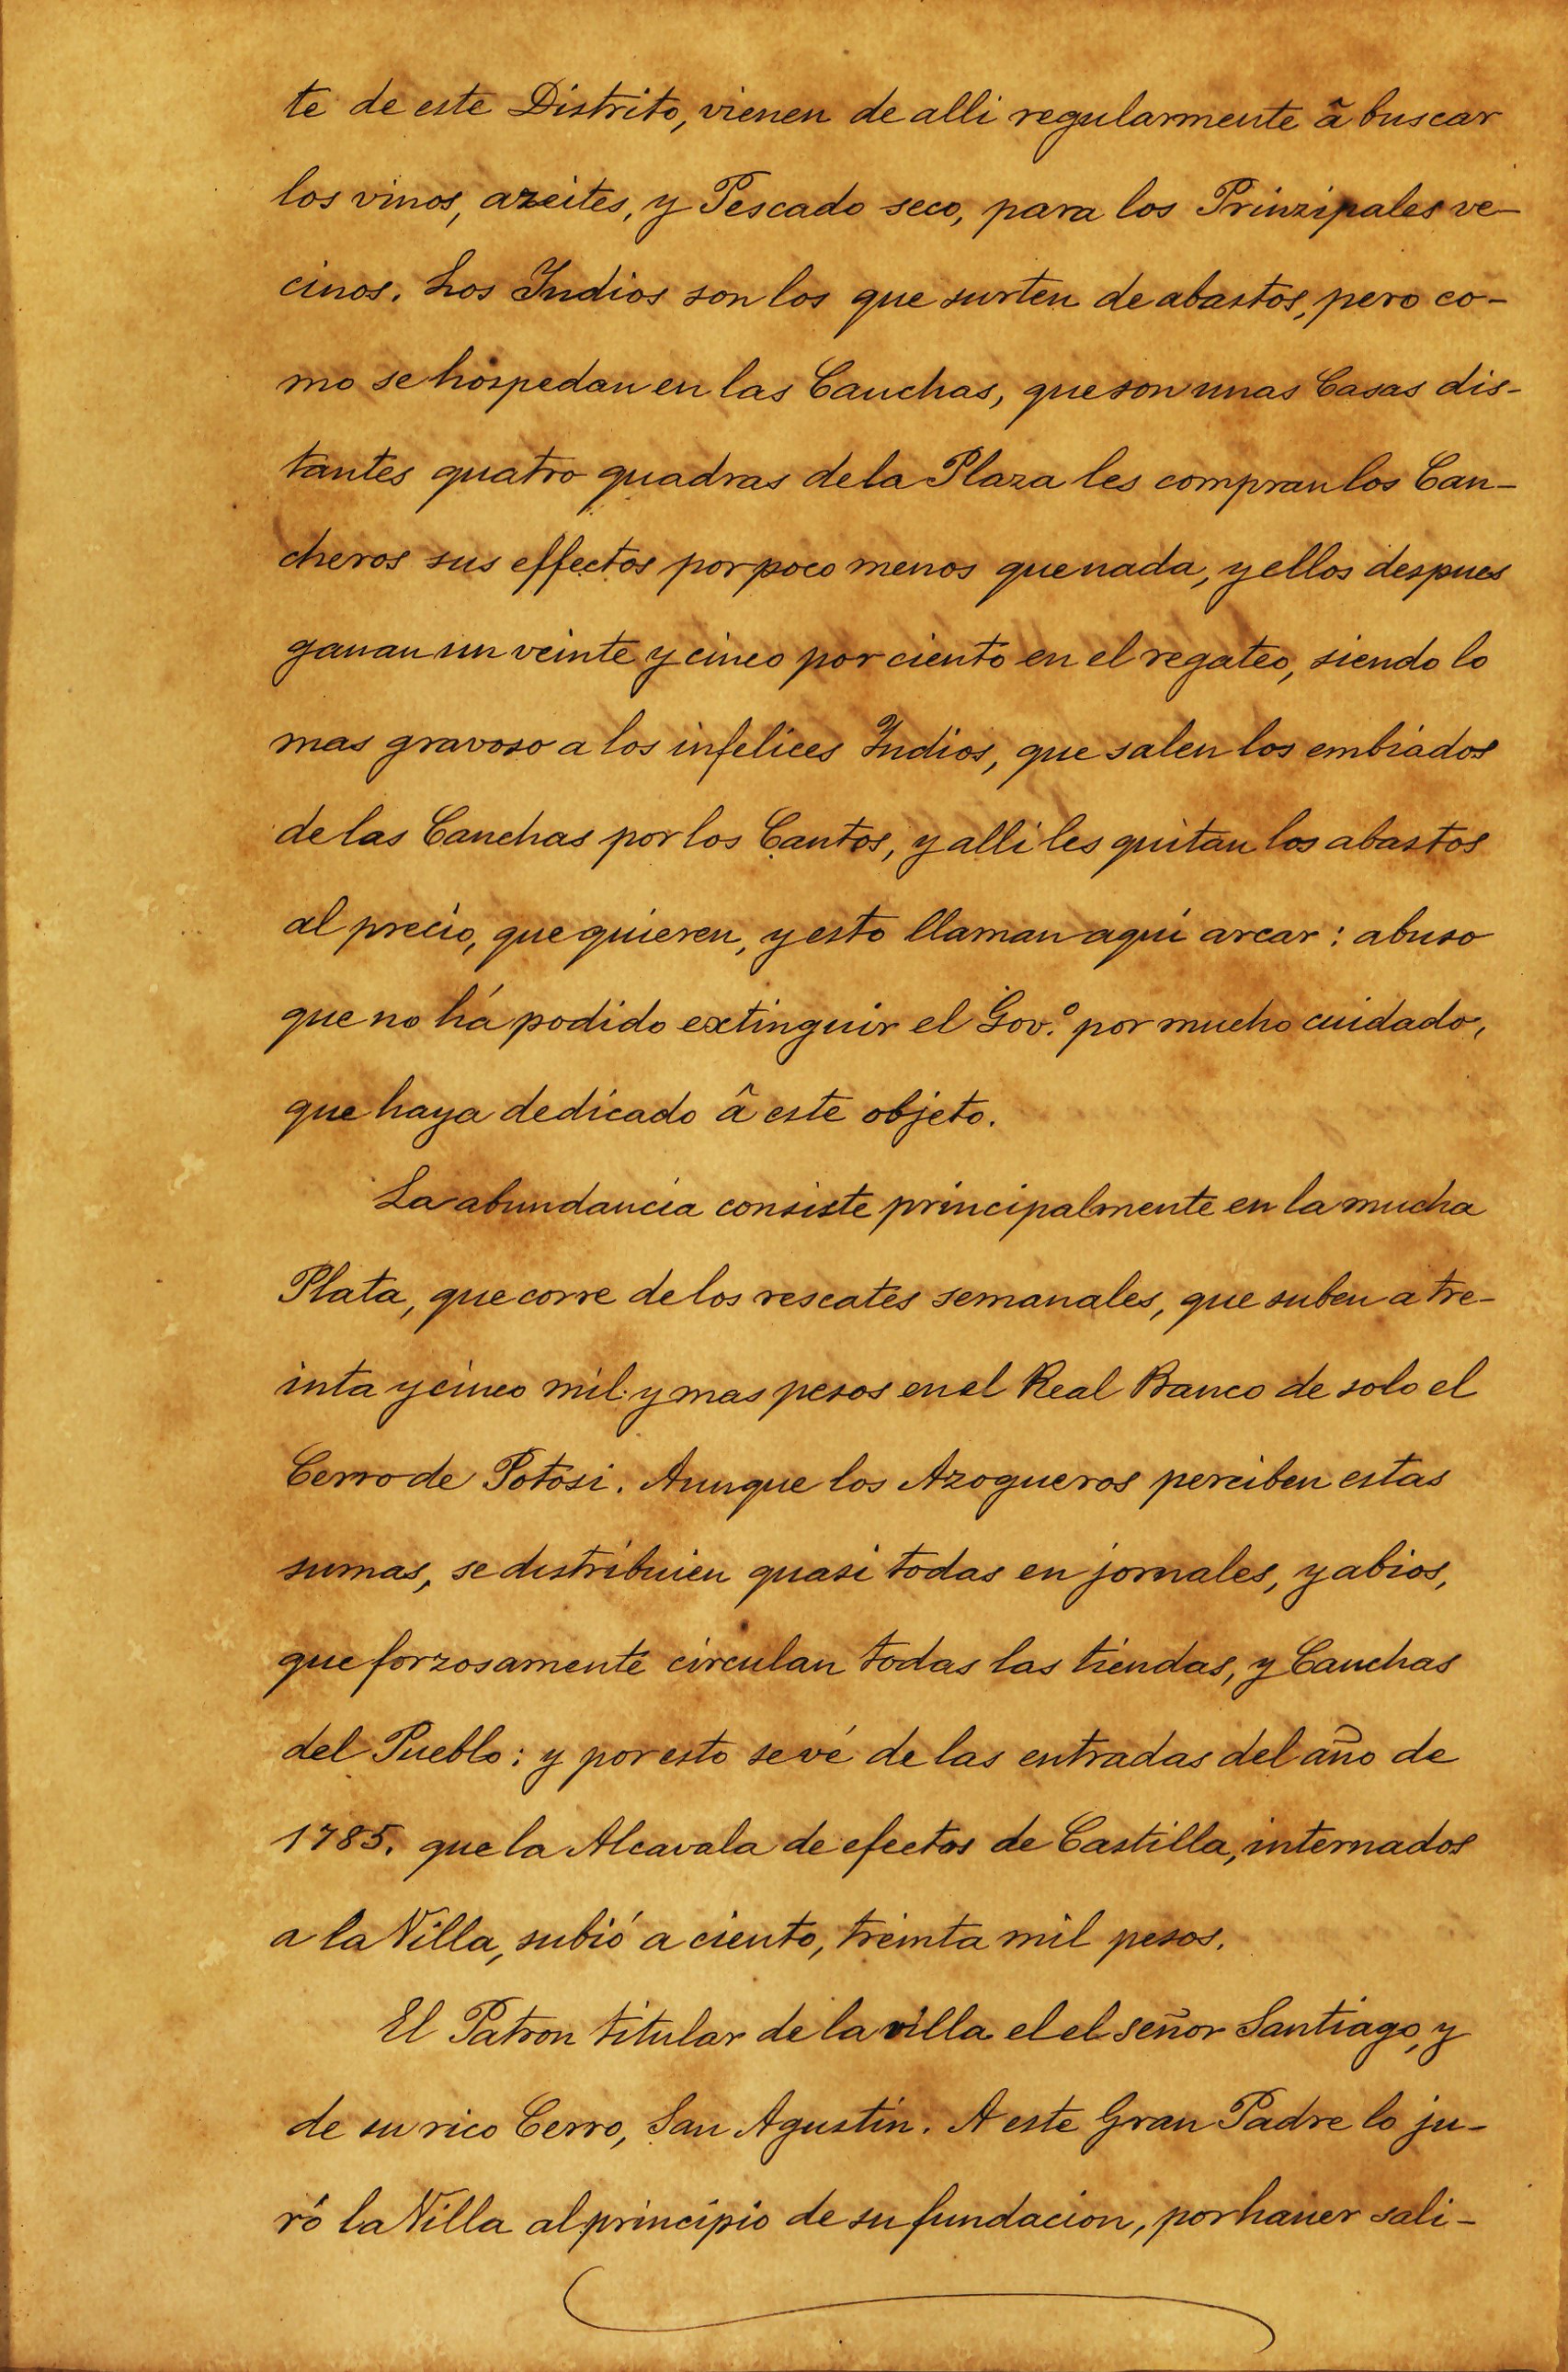 te de este Distrito, vienen de alli regularmente â buscar
los vinos, azeites, y Pescado seco, para los Prinzipales ve-
cinos. Los Indios son los que surten de abastos, pero co-
mo se hospedan en las Canchas, que son unas Casas dis-
tantes quatro quadras de la Plaza les compran los Can-
cheros sus effectos por poco menos que nada, y ellos despues
ganan un veinte y cinco por ciento en el regateo, siendo lo
mas gravoso a los infelices Indios, que salen los embiados
de las Canchas por los Cantos, y alli les quitan los abastos
al precio, que quieren, y esto llaman aqui arcar: abuso
que no há podido extinguir el Gov.º por mucho cuidado,
que haya dedicado â este objeto.
La abundancia consiste principalmente en la mucha
Plata, que corre de los rescates semanales, que suben a tre-
inta y cinco mil y mas pesos en el Real Banco de solo el
Cerro de Potosi. Aunque los Azogueros perciben estas
sumas, se distribuien quasi todas en jornales, y abios,
que forzosamente circulan todas las tiendas, y Canchas
del Pueblo: y por esto se vé de las entradas del año de
1785. que la Alcavala de efectos de Castilla, internados
a la Villa, subió a ciento, treinta mil pesos.
El Patron titular de la villa el el señor Santiago, y
de su rico Cerro, San Agustin. A este Gran Padre lo ju-
ró la Villa al principio de su fundacion, por hauer sali-